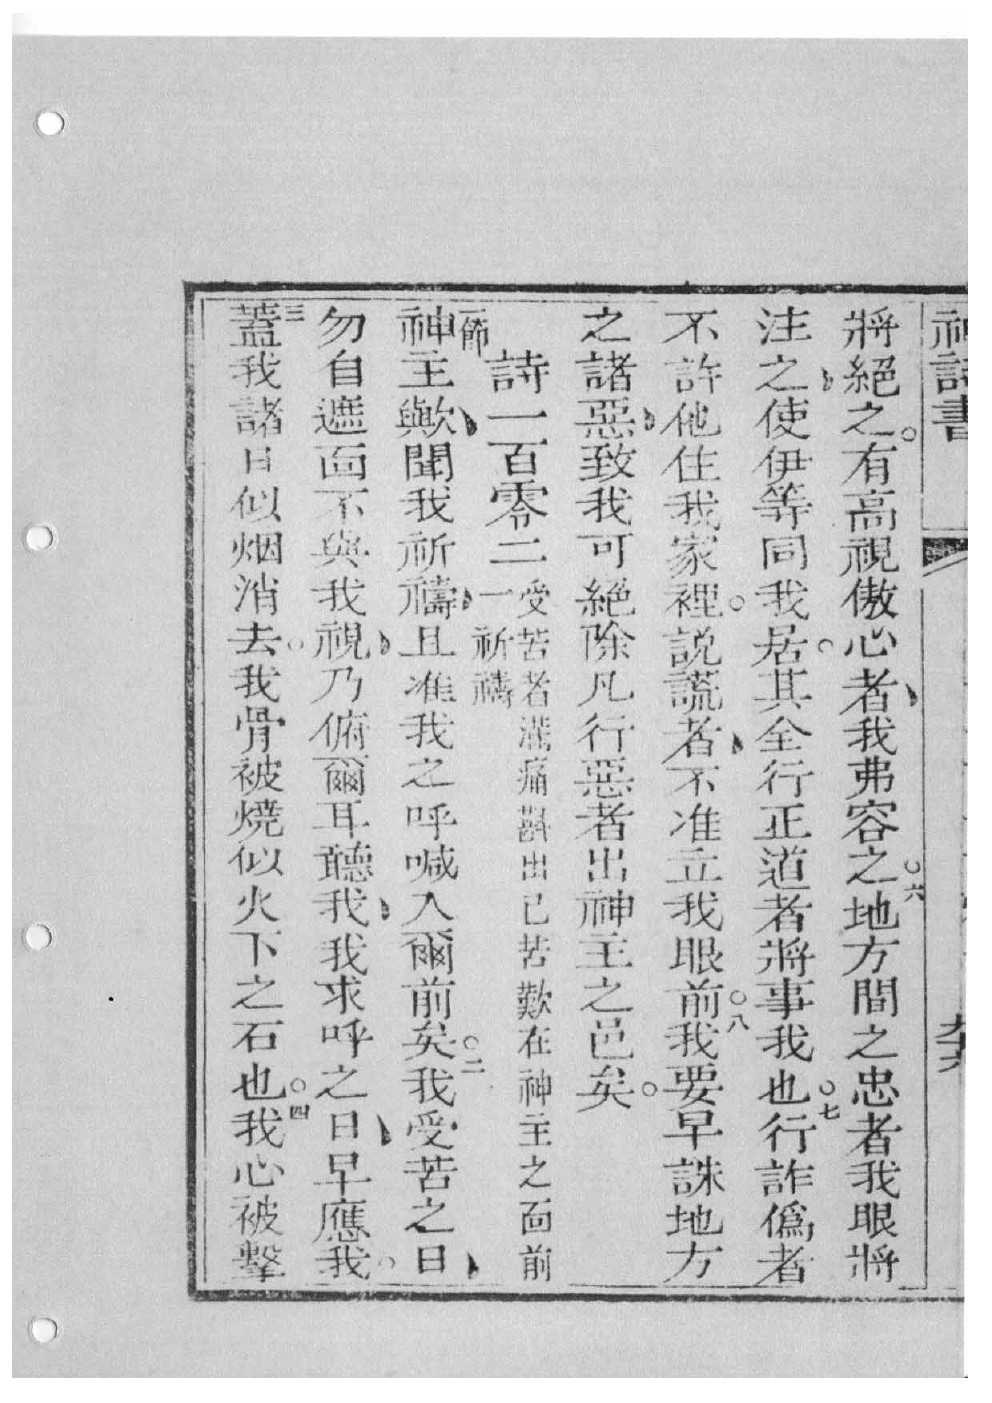 神詩書 九十六
將絕之。有高視傲心者、我弗容之。六地方間之忠者我眼將
注之、使伊等同我居。其全行正道者將事我也。七行詐僞者
不許他住我家裡。說謊者、不准立我眼前。八我要早誅地方
之諸惡、致我可絕除凡行惡者出神主之邑矣。
詩一百零二 受苦者滿痛斟出已苦歎在神主之面前
一祈禱
一節神主歟、聞我祈禱、且准我之呼喊入爾前矣。二我受苦之日、
勿自遮面不與我視、乃俯爾耳聽我、我求呼之日、早應我。
三蓋我諸日似烟消去。我骨被燒似火下之石也。四我心被擊